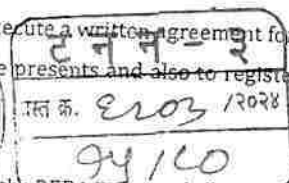 ecute a written agreement fo
ट न न - २
e presents and also to registe
दस्त क्र. ६२०३ /२०२४
१५/८०